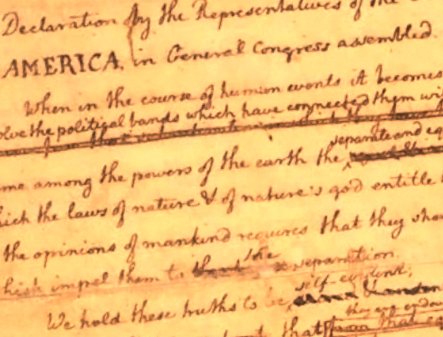 Declaration by the Representatives of the
AMERICA, in General Congress assembled.
When in the course of human events it becomes
the political bands which have connected them
separate and
among the powers of the earth the
the laws of nature & of nature's god entitle
the opinions of mankind requires that they
impel them to the separation.
We hold these truths to be self evident;
they are
that from that